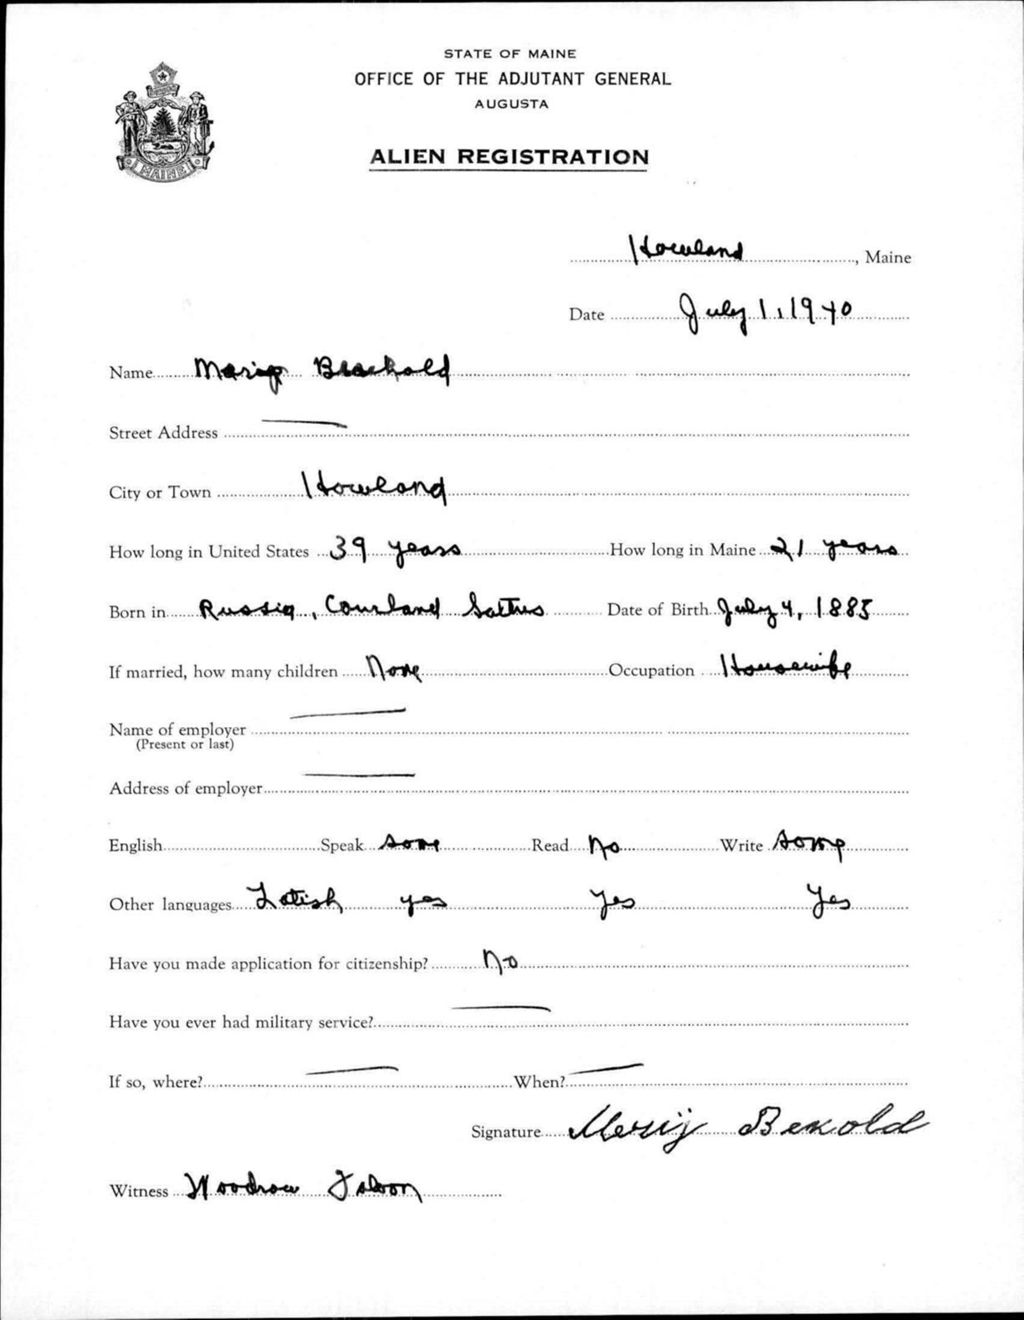 STATE OF MAINE
OFFICE OF THE ADJUTANT GENERAL
AUGUSTA
MAINE
ALIEN REGISTRATION
Howland, Maine
Date July 1, 1940
Name
Street Address —
City or Town Howland
How long in United States 39 years How long in Maine 21 years
Born in Russia, Courland Date of Birth July 4, 1885
If married, how many children None Occupation Housewife
Name of employer —
(Present or last)
Address of employer —
English Speak some Read No Write some
Other languages Latish yes Yes Yes
Have you made application for citizenship? No
Have you ever had military service? —
If so, where? — When? —
Signature Bekold
Witness Woodrow